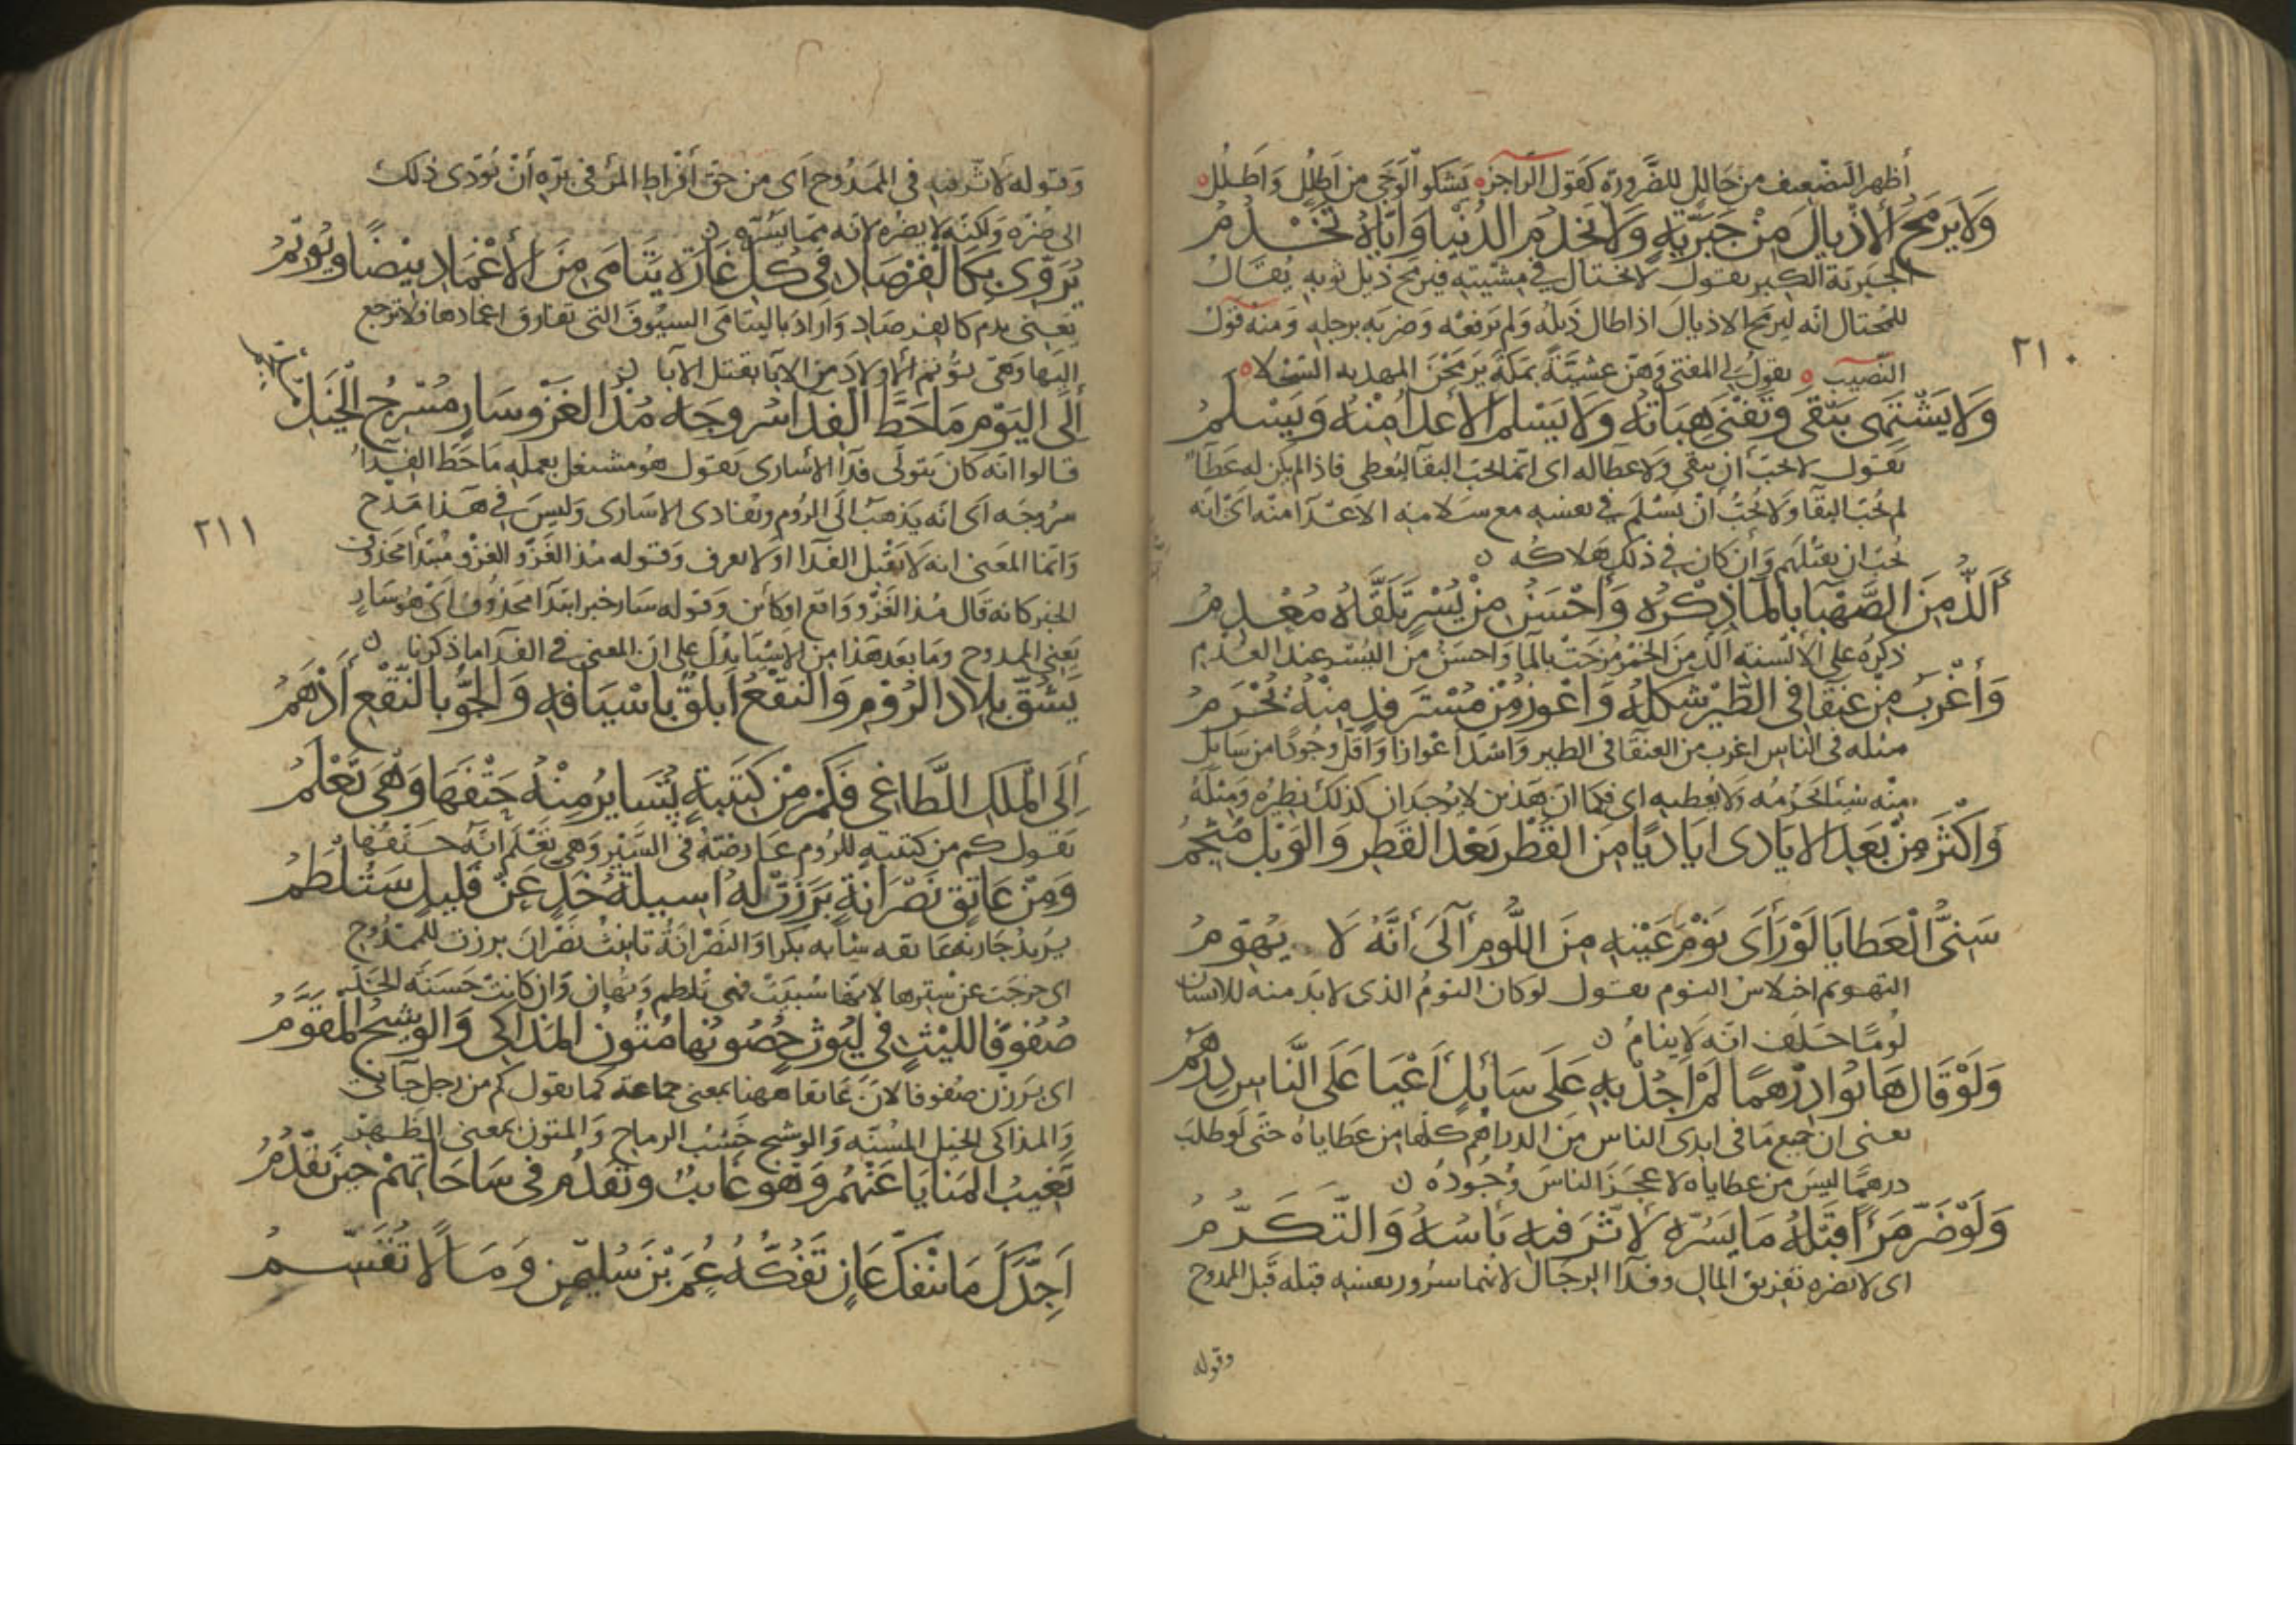 أظهر التضعيف من حالل للضرورة كقول الراجز يشكو الوجى من أظلل وأظلل
وَلَا يَرْمَحُ الأذيالَ مِنْ جَبَرِيّةٍ وَلَا يَخْدُمُ الدُنْيَا وَايّاهُ تَخْدُمُ
الجبرية الكبر يقول لا يختال في مشيته فيرمح ذيل ثوبه يقال
للمختال انه ليرمح الاذيال اذا طال ذيله ولم يرفعه وضربه برجله ومنه قول
النصيب يقول لي المفتي وهن عشية بمكة يرمحن المهدبه السحلا
٢١٠
وَلَا يَشْتَهي يَبْقَى وَتَفْنَى هِبَاتُهُ وَلَا يَسْلَمُ الأعدا مِنْهُ وَيَسْلَمُ
يقول لا يحب أن يبقى ولا عطا له اي انما يحب البقا ليعطي فاذا لم يكن له عطآ
لم يحب البقا ولا يحب أن يسلم في نفسه مع سلامه الاعدا منه اي انه
يحب ان يقتلهم وان كان في ذلك هلاكه
أَلَذُّ مِنَ الصَّهْبَا بِالمآ ذِكْرُهُ وَأَحْسَنُ مِنْ يُسْرٍ تَلَقَّاهُ مُعْدِمُ
ذكره على الألسنة الذ من الخمر مزجت بالما واحسن من اليسر عند العدم
وَأَغْرَبُ مِنْ عَنْقَا فِى الطَّيْرِ شَكْلُهُ وَاَعْوَزُ مِنْ مُسْتَرْفِدٍ مِنْهُ يُحْرَمُ
مثله في الناس اغرب من العنقا في الطير واشد اعوازا واقل وجودا من سايل
منه شيئا يحرمه ولا يعطيه اي فكما ان هذين لا يوجدان كذلك نظيره ومثله
وَاَكْثَرُ مِنْ بَعْدِ الايَادى ايَادِيًا مِنَ القَطْرِ بَعْدَ القَطْرِ وَالوَبْلُ مُثْجِمُ
سَنىُّ الْعَطَايَا لَوْ رَأَى نَوْمَ عَيْنِهِ مِنَ اللُّومِ آلَى أَنَّهُ لَا يُهَوِّمُ
التهويم اختلاس النوم يقول لوكان النوم الذي لابد منه للانسان
لومًا حلف انه لا ينام
وَلَوْ قَالَ هَاتُوا دِرْهَمًا لَمْ أَجُدْ بِهِ عَلَى سَائِلٍ أَعْيَا عَلَى النَّاسِ دِرْهَمُ
يعني ان جميع ما في ايدي الناس من الدراهم كلها من عطاياه حتى لو طلب
درهمًا ليس من عطاياه لاعجز الناس وجوده
وَلَوْ ضَرَّ مَرْأً قَبْلَهُ مَا يَسُرّهُ لَاثَّرَ فِيهِ بَأسُهُ وَالتَّكَرّمُ
اي لا يضره تفريق المال وفدآ الرجال لانهما سرور نفسه قبله قبل الممدوح
وقوله
وقوله لأثر فيه في الممدوح اي من حق أفراط المرء في بره أن يؤدى ذلك
الى ضره ولكنه لا يضره لانه مما يسره
يُرَوّى بِكَالْفِرْصَادِ فِى كُلّ غَارَةٍ يَتَامَى مِنَ الأَغْمَادِ بِيْضًا وَيُوتِمُ
يعني بدم كالفرصاد واراد باليتامى السيوف التي تفارق اغمادها فلا ترجع
اليها وهي تؤتم الأولاد من الآبا بقتل الآبا
أِلَى اليَوْمِ مَا حَطَّ الفِدَا سُرُوجَه مُذُ الغَزْوُ سَارٍ مُسْرِجُ الْخَيْلِ مُلْجِمُ
قالوا انه كان يتولى فدآ الأسارى يقول هو مشتغل بعمله ما حط الفدآ
سروجه اي انه يذهب الى الروم ويفادي الاسارى وليس في هذا مدح
٢١١
وانما المعنى انه لا يقبل الفدا او لا يعرف وقوله مذ الغزو الغزو مبتدا محذوف
الخبر كانه قال مذ الغزو واقع او كائن وقوله سار خبر ابتدآ محذوف اى هو سار
يعني الممدوح وما بعد هذا من الابيات يدل على ان المعنى في الفدا ما ذكرنا
يَشُقّ بِلادَ الرُوْمِ وَالنَقْعُ اَبلَقٌ بِاسْيَافِهِ وَالجَوُّ بِالنّقْعِ أَدْهَمُ
أِلَى المَلْكِ الطَّاغِى فَكَمْ مِنْ كَتَيبَةٍ تُسَايرُ مِنْهُ حَتْفَهَا وَهْىَ تَعْلَمُ
يقول كم من كتيبة للروم عارضته في السير وهي تعلم انه حتفها
وَمِنْ عَاتِقٍ نَصْرَانَةٍ بَرَزَتْ لَهُ اسِيلَةُ خَدٍّ عَنْ قَليلٍ سَتُلْطَمُ
يريد جارية عاتقه شابه بكرا والنصرانة تانيث نصران برزت للممدوح
اي خرجت عن سترها لانها سبيت فهي تلطم وتهان وان كانت حسنة الخد
صُفُوفًا لِلَيْثٍ فى لُيُوثٍ حُصُونُها مُتُونُ المَذَاكِى وَالوَشِيجُ المُقَوَّمُ
اي برزن صفوفا لان عاتقا ههنا بمعنى جماعة كما يقول كم من رجل جآني
والمذاكي الخيل المسنه والوشيج خشب الرماح والمتون بمعنى الظهر
تَغِيبُ المَنَايَا عَنْهُمُ وَهْوَ غَائبٌ وَتَقْدُمُ فى سَاحَاتِهِمْ حِينَ يَقْدُمُ
اَجِدَّكَ مَا تَنْفَكّ عَانٍ تَفُكّهُ عُمَ بْنَ سُلَيْمَنٍ وَمَالًا تُقَسّمُ